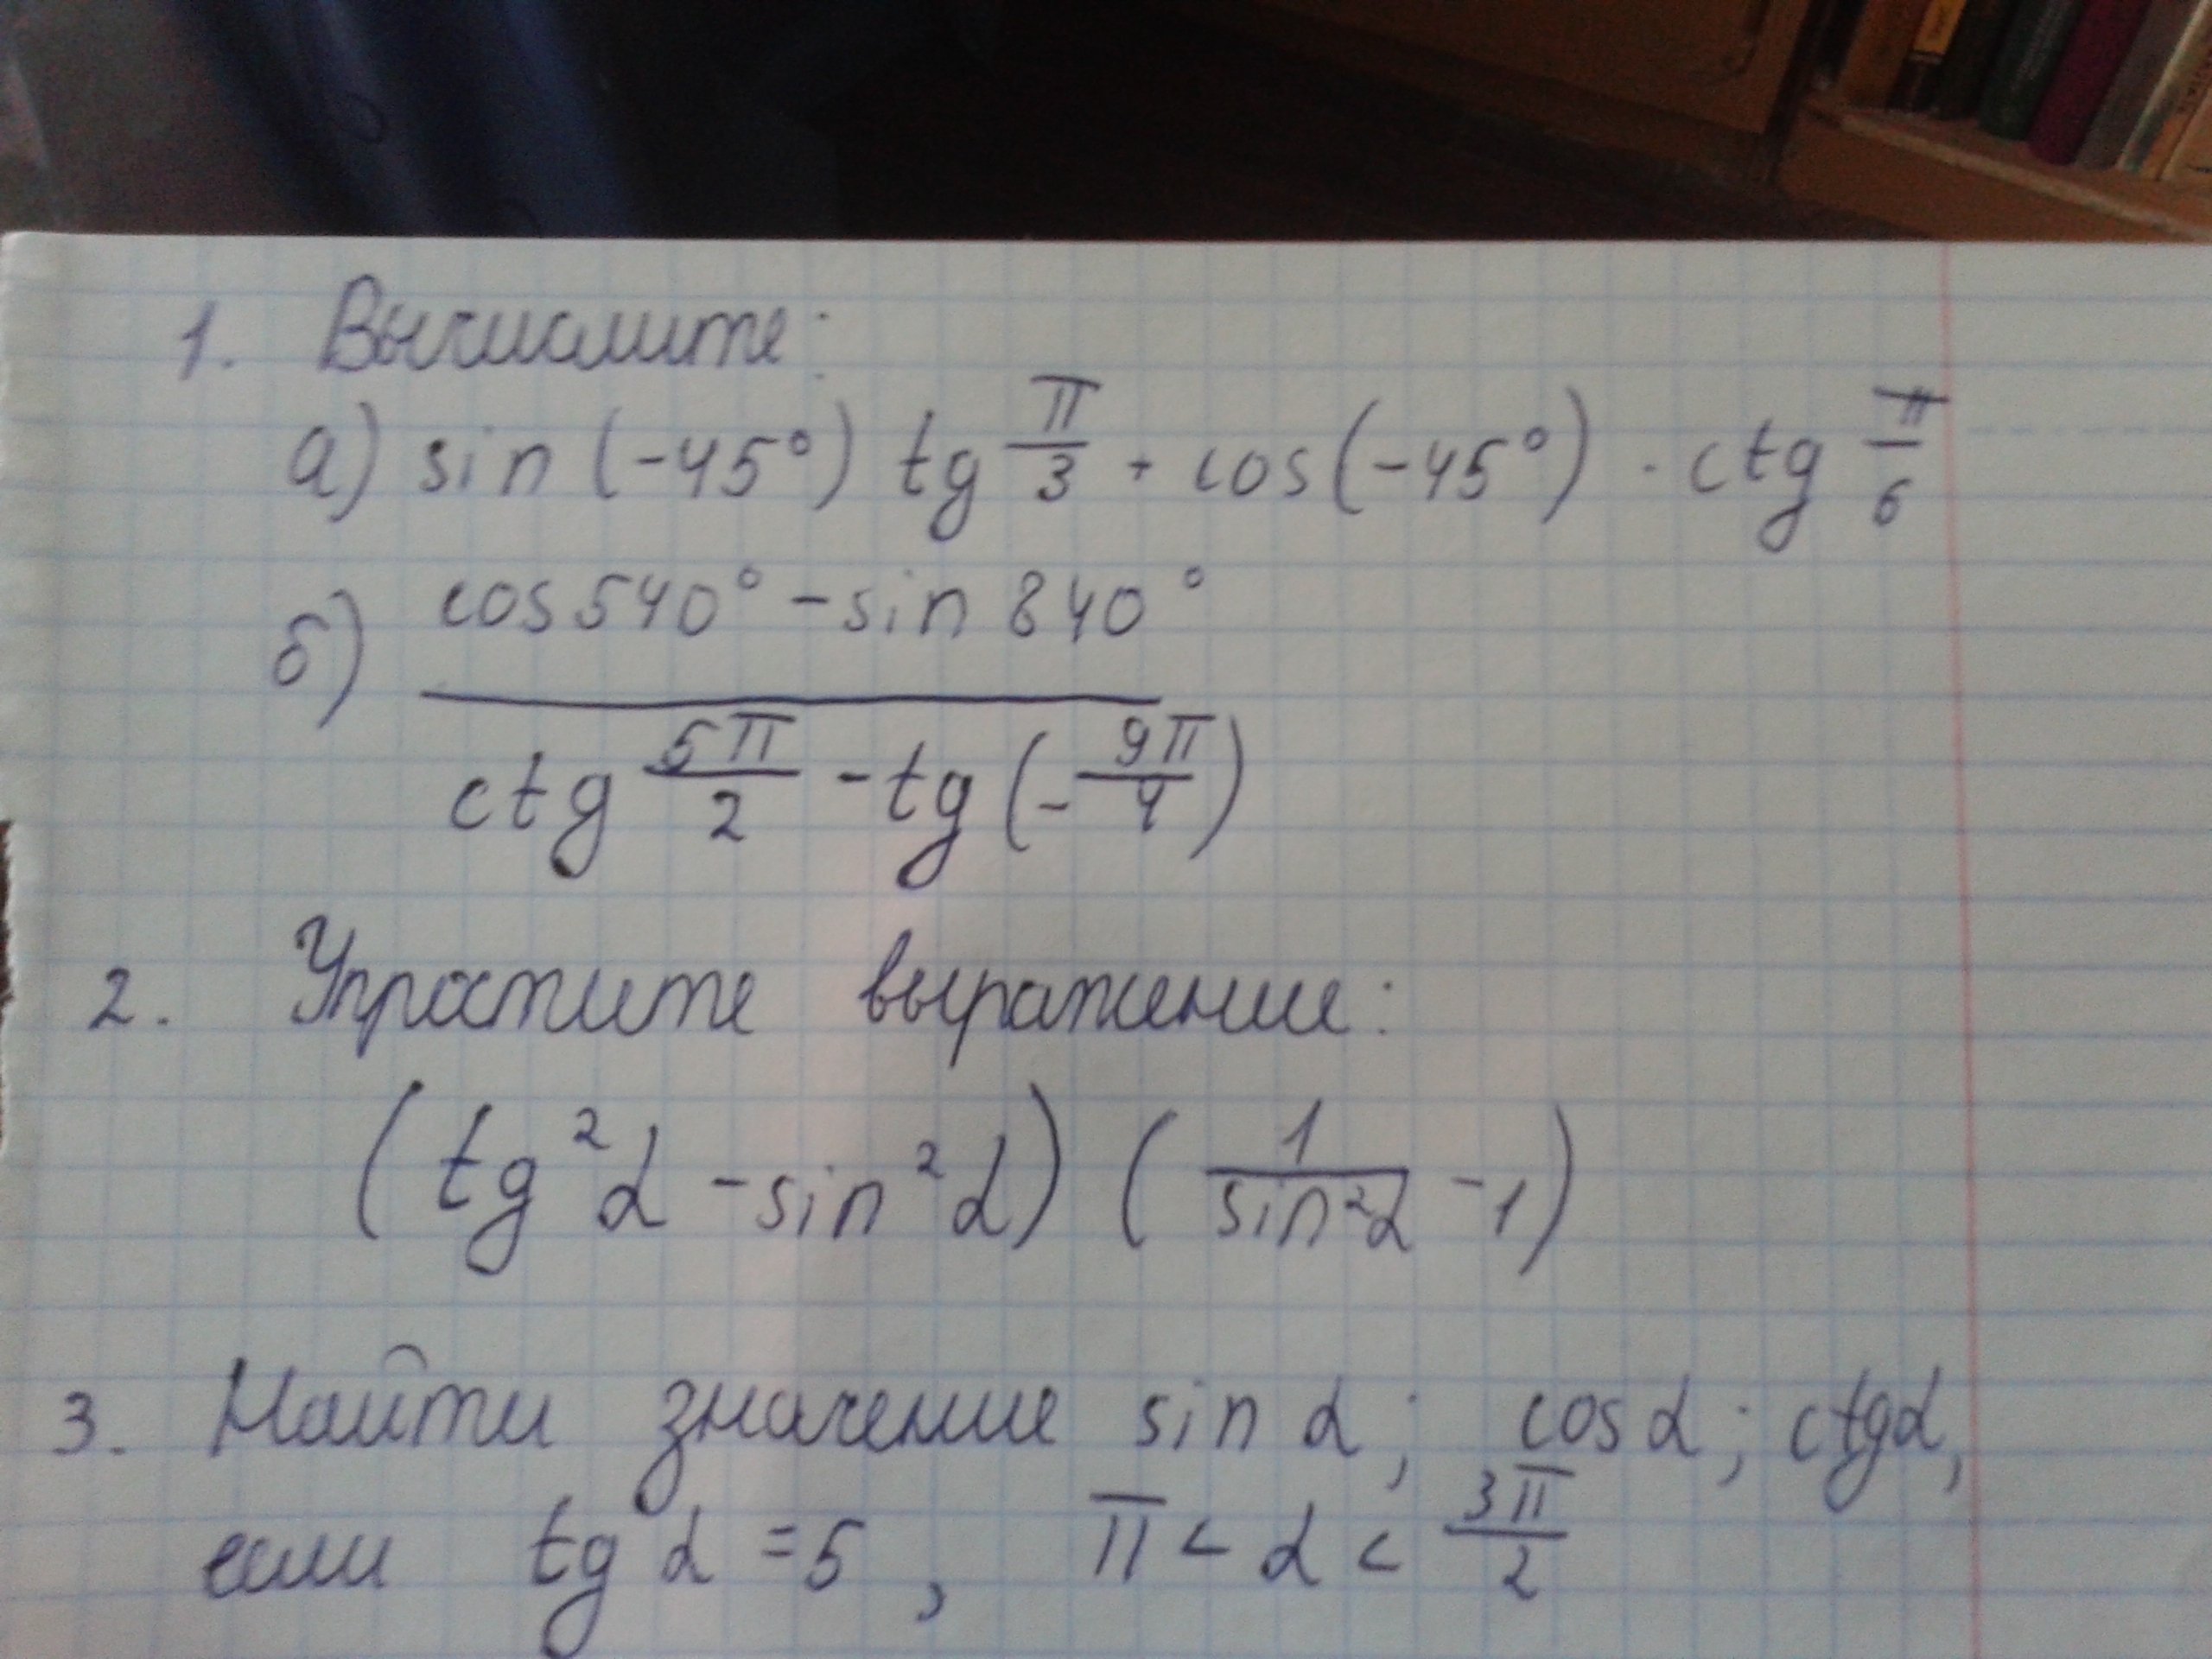 1. Вычислите:
а) sin (-45°) tg π/3 + cos(-45°) · ctg π/6
б) cos540° - sin 840° / ctg 5π/2 - tg (- 9π/4)
2. Упростите выражение:
(tg²α - sin²α) (1/sin²α - 1)
3. Найти значение sin α; cos α; ctgα,
если tg α = 5, π < α < 3π/2